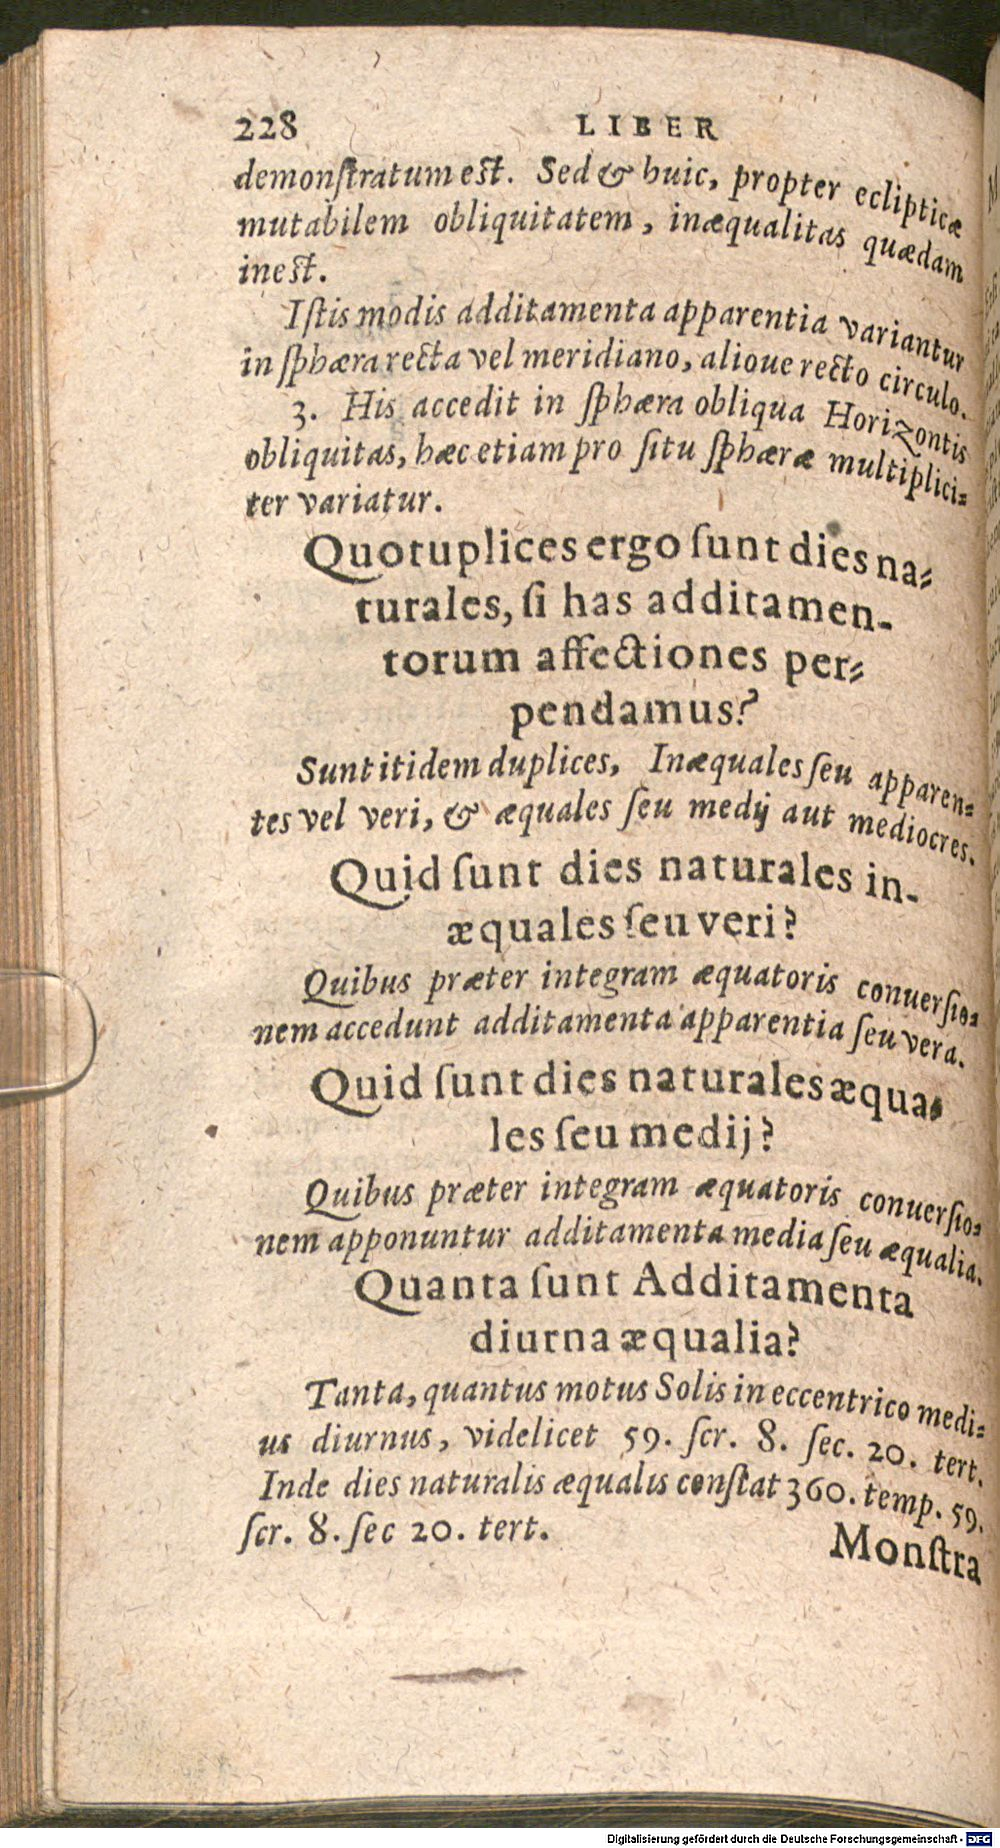 228 LIBER
demonſtratum eſt. Sed & huic, propter eclipticæ
mutabilem obliquitatem, inæqualitas quædam
ineſt.
Iſtis modis additamenta apparentia variantur
in ſphæra recta vel meridiano, alioue recto circulo.
3. His accedit in ſphæra obliqua Horizontis
obliquitas, hæc etiam pro ſitu ſphæræ multiplici⸗
ter variatur.
Quotuplices ergo ſunt dies na⸗
turales, ſi has additamen-
torum affectiones per⸗
pendamus?
Sunt itidem duplices, Inæquales ſeu apparen⸗
tes vel veri, & æquales ſeu medij aut mediocres.
Quid ſunt dies naturales in-
æquales ſeu veri?
Quibus præter integram æquatoris conuerſio⸗
nem accedunt additamenta apparentia ſeu vera.
Quid ſunt dies naturales æqua⸗
les ſeu medij?
Quibus præter integram æquatoris conuerſio⸗
nem apponuntur additamenta media ſeu æqualia.
Quanta ſunt Additamenta
diurna æqualia?
Tanta, quantus motus Solis in eccentrico medi⸗
us diurnus, videlicet 59. ſcr. 8. ſec. 20. tert.
Inde dies naturalis æqualis conſtat 360. temp. 59.
ſcr. 8. ſec 20. tert.
Monſtra
Digitalisierung gefördert durch die Deutsche Forschungsgemeinschaft - DFG